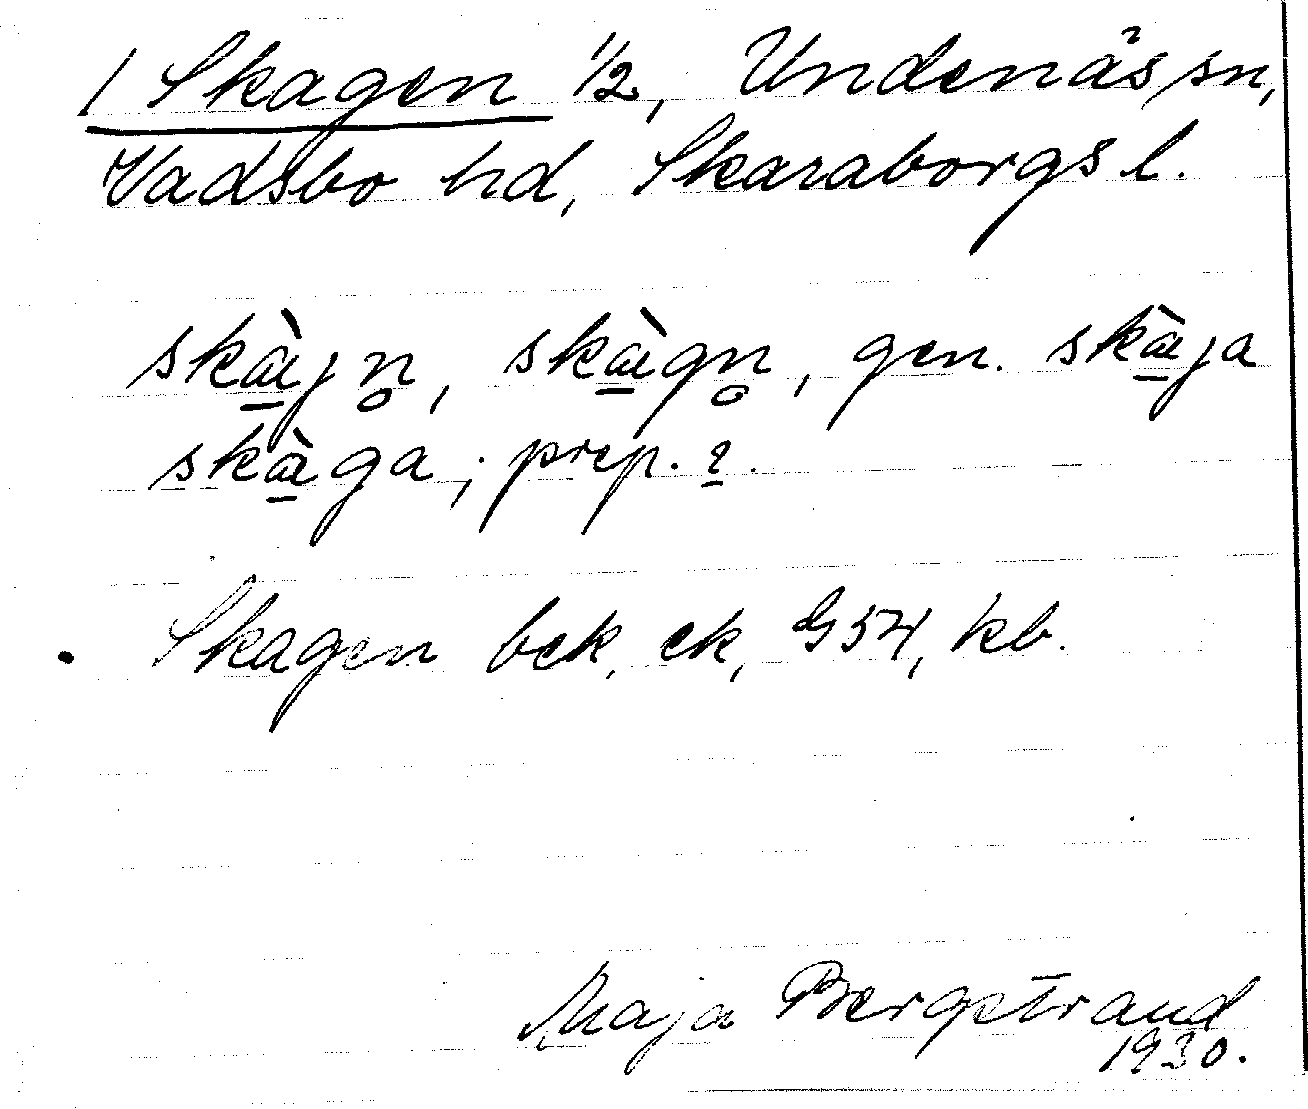 / Skagen 1/2, Undenäs sn,
Vadsbo hd, Skaraborgs l.
skæ̠̀jn̥, skæ̠̀gn̥, gen. skæ̠̀ja
skæ̠̀ga; prep. ı̠.
Skagen bek, ek, G54, kb.
Maja Bergstrand
1930.